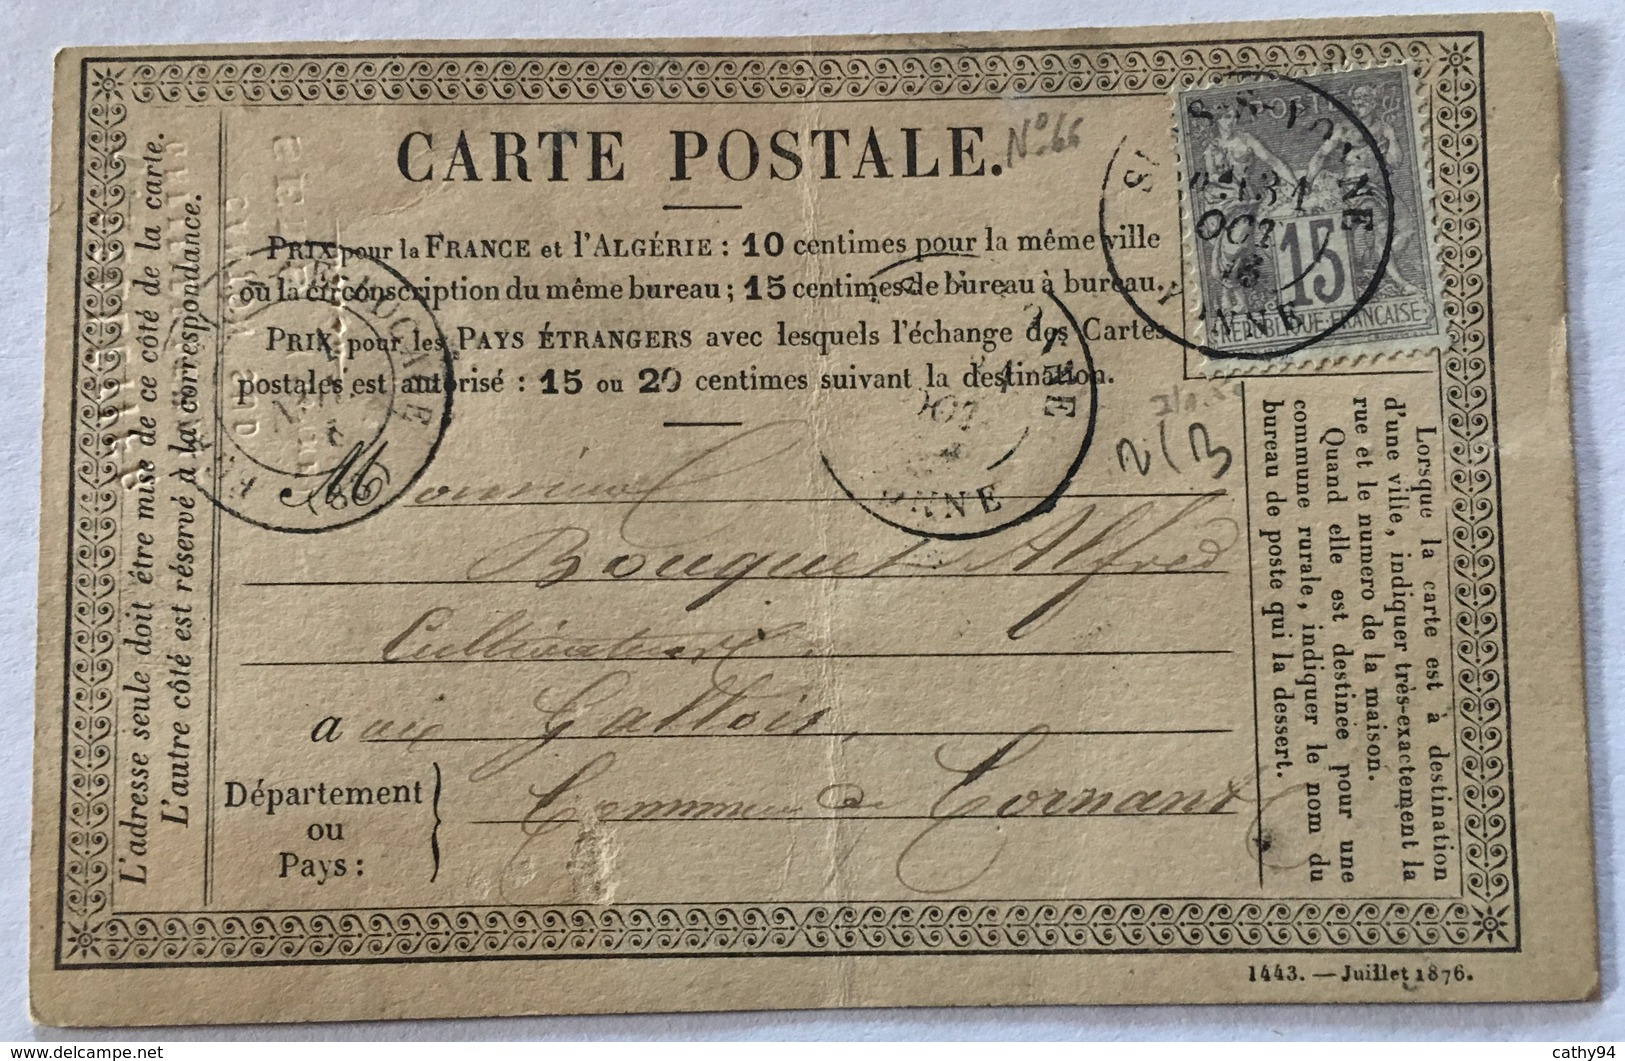 CARTE POSTALE.
N° 66
PRIX pour la FRANCE et l'ALGÉRIE : 10 centimes pour la même ville
ou la circonscription du même bureau ; 15 centimes de bureau à bureau.
PRIX pour les PAYS ÉTRANGERS avec lesquels l'échange des Cartes
postales est autorisé : 15 ou 20 centimes suivant la destination.
Bouquet Alfred
Cultivateur
a aux Gallois,
Département
ou
Pays :
Commune de Cornant
L'adresse seule doit être mise de ce côté de la carte.
L'autre côté est réservé à la correspondance.
Lorsque la carte est à destination
d'une ville, indiquer très-exactement la
rue et le numéro de la maison.
Quand elle est destinée pour une
commune rurale, indiquer le nom du
bureau de poste qui la dessert.
OCT
15
REPUBLIQUE FRANCAISE
1443. — Juillet 1876.
www.delcampe.net
cathy94